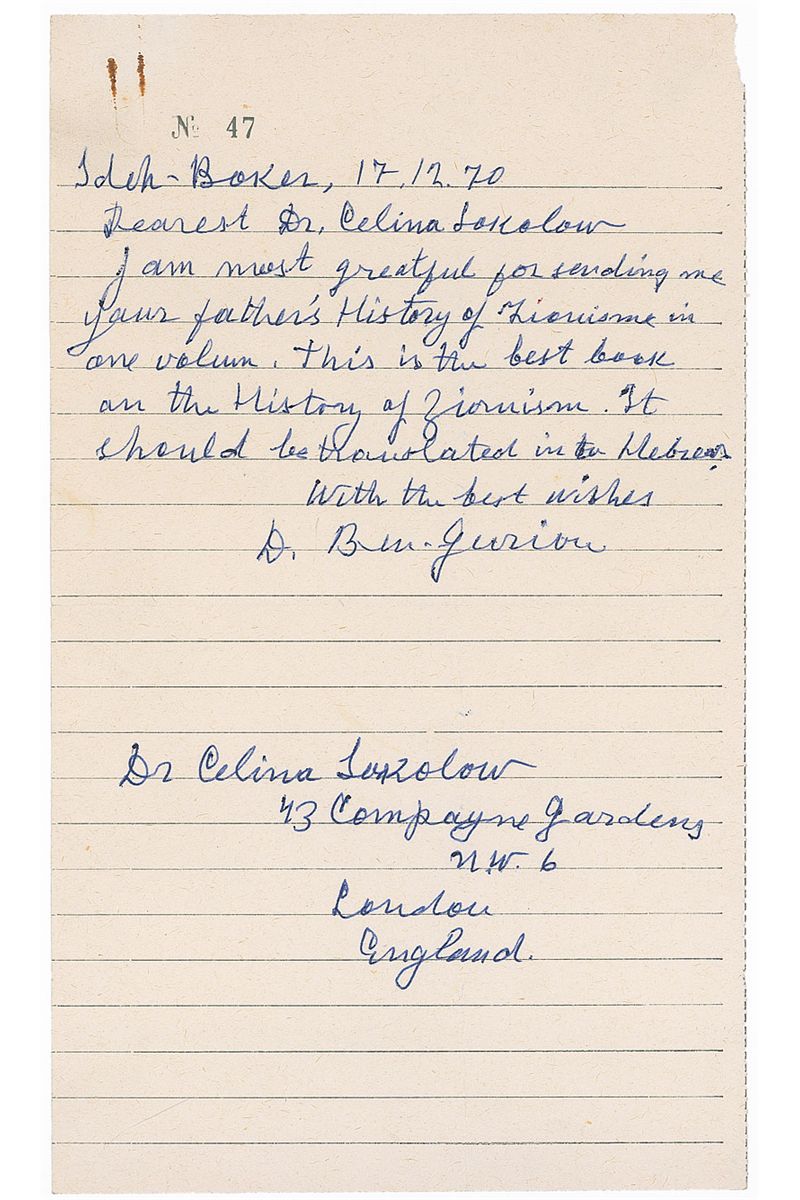 № 47
Sdeh-Boker, 17.12.70
Dearest Dr. Celina Sokolow
I am most greatful for sending me
your father's History of Zionisme in
one volum. This is the best book
on the History of Zionism. It
should be translated into Hebrew.
With the best wishes
D. Ben-Gurion
Dr Celina Sokolow
43 Compayne Gardens
N.W. 6
London
England.